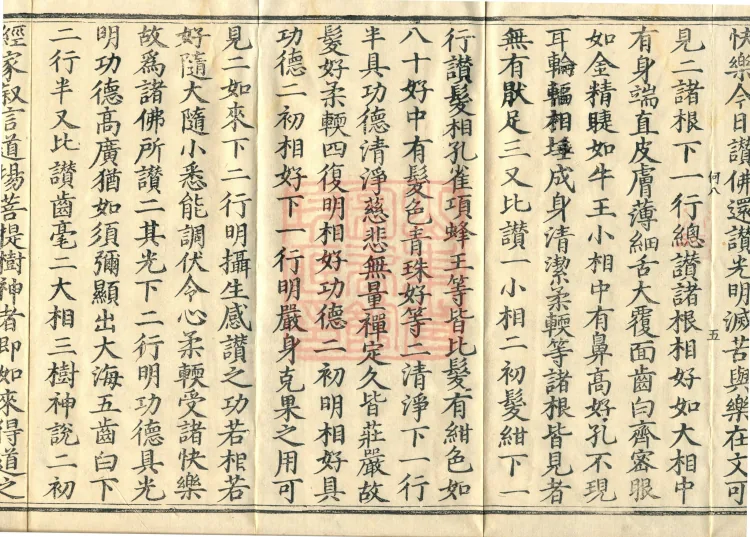 快樂今日讃佛還讃光明滅苦與樂在文可
何八 五
見二諸根下一行總讃諸根相好如大相中
有身端直皮膚薄細舌大覆面齒白齊密眼
如金精睫如牛王小相中有鼻高好孔不現
耳輪輻相埵成身清潔柔軟等諸根皆見者
無有猒足三又比讃一小相二初髮紺下一
行讃髮相孔雀項蜂王等皆比髮有紺色如
八十好中有髮色青珠好等二清淨下一行
半具功德清淨慈悲無量禪定久皆莊嚴故
髮好柔軟四復明相好功德二初明相好具
功德二初相好下一行明嚴身克果之用可
見二如來下二行明攝生感讃之功若相若
好隨大隨小悉能調伏令心柔軟受諸快樂
故為諸佛所讃二其光下二行明功德具光
明功德高廣猶如須彌顯出大海五齒白下
二行半又比讃齒毫二大相三樹神說二初
經家叙言道場菩提樹神者即如來得道之